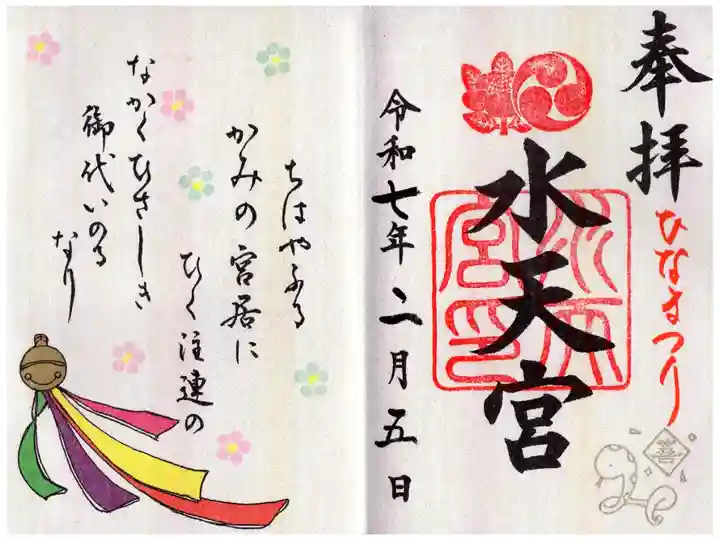 奉拝
ひなまつり
水天宮
水天宮印
令和七年二月五日
喜
ちはやふる
かみの宮居に
ひく注連の
なかくひさしき
御代いのる
なり